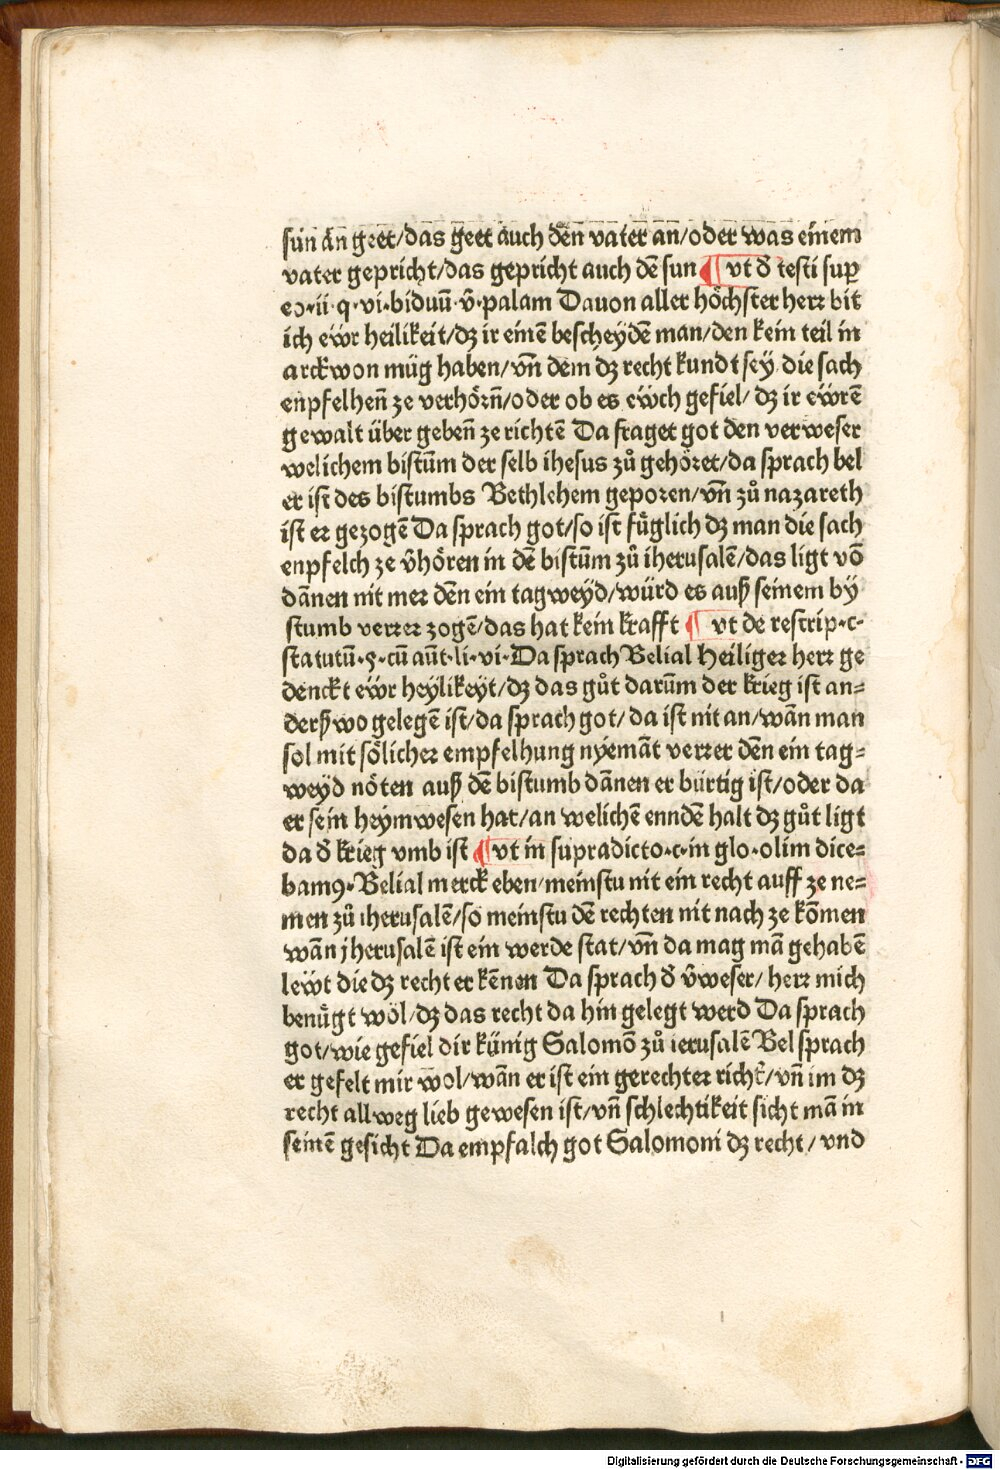 sun an geet/das geet auch den vater an/oder was einem
vater gepricht/das gepricht auch dē sun ¶ vt đ testi sup̄
eo·ii·q·vi·biduū·v̄·palam Dauon aller höchster herr bit
ich eẅr heilikeit/dz ir einē bescheydē man/den kein teil in
arckwon müg haben/vn̄ dem dz recht kundt sey die sach
enpfelhen̄ ze verhörn̄/oder ob es eẅch gefiel/ dz ir eẅrē
gewalt über geben̄ ze richtē Da fraget got den verweser
welichem bistūm der selb ihesus zů gehöret/da sprach bel
er ist des bistumbs Bethlehem geporen/vn̄ zů nazareth
ist er gezogē Da sprach got/so ist füglich dz man die sach
enpfelch ze v̄hören in dē bistūm zů iherusalē/das ligt vō
dānen nit mer dēn ein tagweyd/würd es auß seinem by
stumb verrer zogē/das hat kein krafft ¶ vt de rescrip·c·
statutū·ꝯ·cū aūt·li·vi·Da sprach Belial Heiliger herr ge
denckt eẅr heylikeyt/dz das gůt darūm der krieg ist an=
derßwo gelegē ist/da sprach got/ da ist nit an/wān man
sol mit sölicher empfelhung nyemāt verrer dēn ein tag=
weyd nöten auß dē bistumb dānen er bürtig ist/oder da
er sein heymwesen hat/an welichē enndē halt dz gůt ligt
da đ krieg vmb ist ¶ vt in supradicto·c·in glo·olim dice=
bamꝰ·Belial merck eben/meinstu nit ein recht auff ze ne=
men zů iherusalē/so meinstu dē rechten nit nach ze kōmen
wān jherusalē ist ein werde stat/vn̄ da mag mā gehabē
leẅt die dz recht erkēnen Da sprach đ v̄weser/ herr mich
benügt wöl/dz das recht da hin gelegt werd Da sprach
got/wie gefiel dir künig Salomō zů ierusalē Bel sprach
er gefelt mir wol/wān er ist ein gerechter richt̄/vn̄ im dz
recht allweg lieb gewesen ist/vn̄ schlechtikeit sicht mā in
seinē gesicht Da empfalch got Salomoni dz recht/ vnd
Digitalisierung gefördert durch die Deutsche Forschungsgemeinschaft - DFG